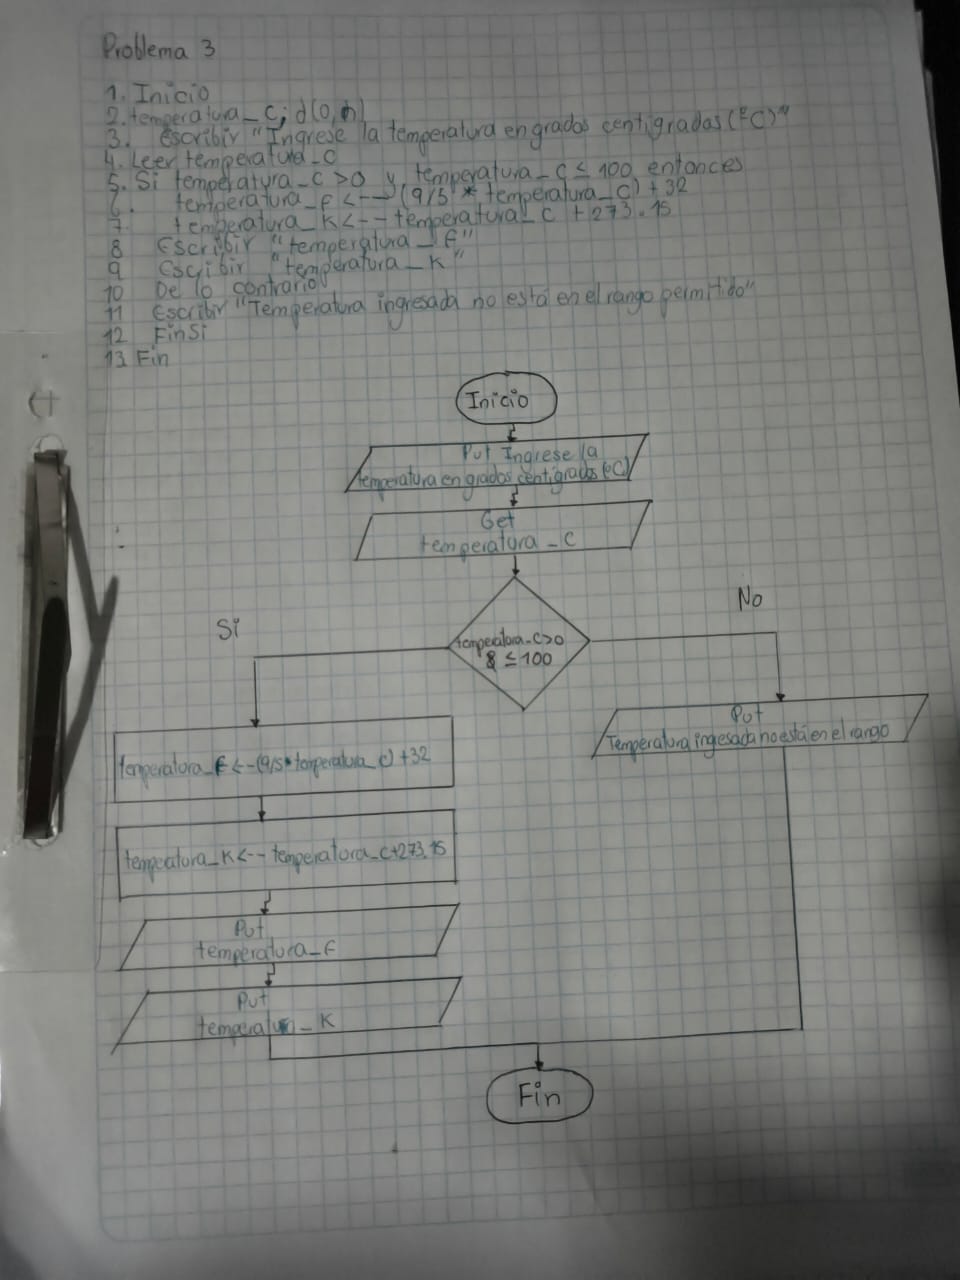 Problema 3
1. Inicio
2. temperatura_C; d(0,n)
3. Escribir "Ingrese la temperatura en grados centigrados (°C)"
4. Leer temperatura_C
5. Si temperatura_C > 0 y temperatura_C ≤ 100 entonces
6. temperatura_F <-- (9/5 * temperatura_C) + 32
7. temperatura_K <-- temperatura_C + 273.15
8 Escribir "temperatura_F"
9 Escribir "temperatura_K"
10 De lo contrario
11 Escribir "Temperatura ingresada no está en el rango permitido"
12 FinSi
13 Fin
Inicio
Put Ingrese la
temperatura en grados centigrados (°C)
Get
temperatura_C
Si
No
temperatura_C>0
& ≤ 100
temperatura_F <-(9/5*temperatura_C) +32
Put
Temperatura ingesada no está en el rango
temperatura_K <-- temperatura_C+273.15
Put
temperatura_F
Put
temperatura_K
Fin